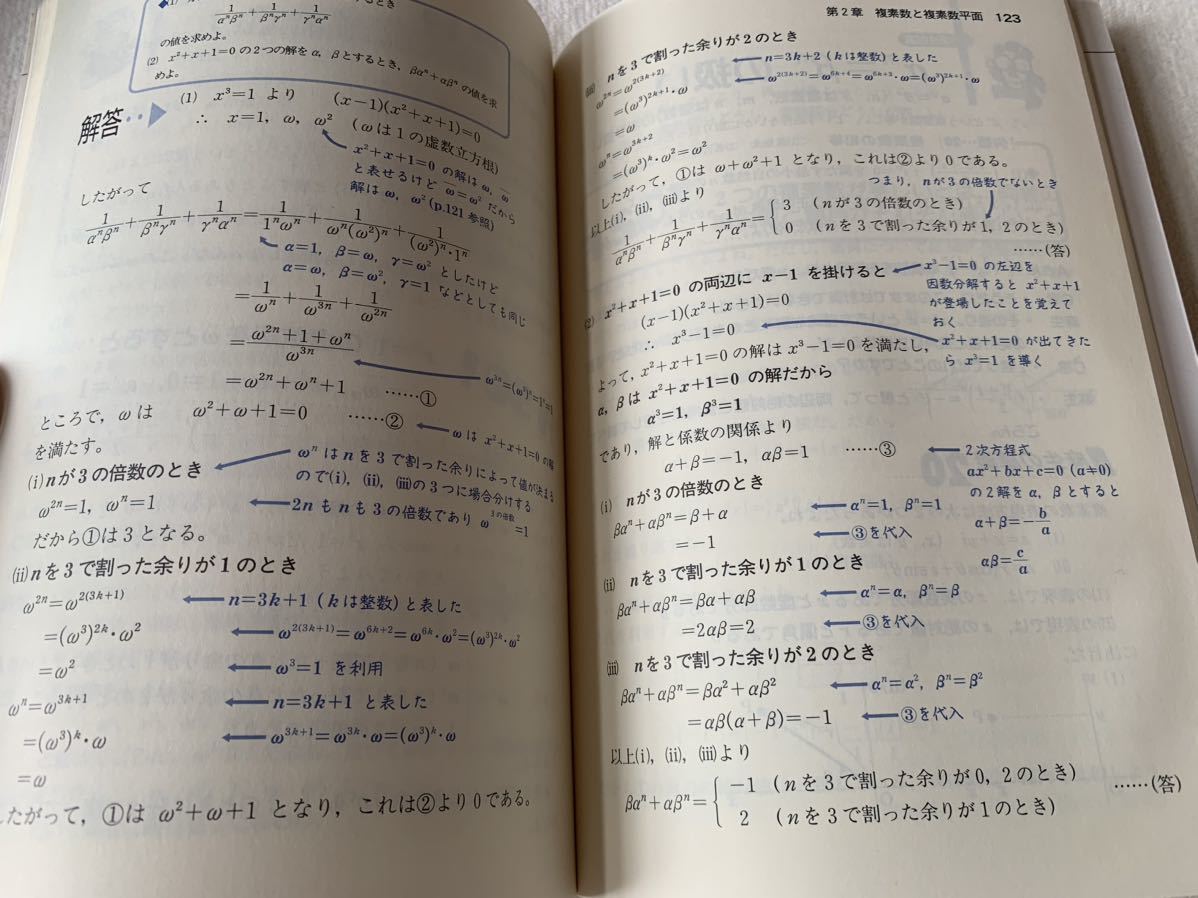 1/αⁿβⁿ + 1/βⁿγⁿ + 1/γⁿαⁿ
の値を求めよ。
(2) x²+x+1=0 の2つの解を α, β とするとき, βαⁿ+αβⁿ の値を求
めよ。
解答‥▶
(1) x³=1 より (x−1)(x²+x+1)=0
∴ x=1, ω, ω² (ω は1の虚数立方根)
x²+x+1=0 の解は ω, ω̄
と表せるけど ω̄=ω² だから
解は ω, ω² (p.121 参照)
したがって
1/αⁿβⁿ + 1/βⁿγⁿ + 1/γⁿαⁿ = 1/1ⁿωⁿ + 1/ωⁿ(ω²)ⁿ + 1/(ω²)ⁿ・1ⁿ
α=1, β=ω, γ=ω² としたけど
α=ω, β=ω², γ=1 などとしても同じ
= 1/ωⁿ + 1/ω³ⁿ + 1/ω²ⁿ
= (ω²ⁿ+1+ωⁿ)/ω³ⁿ
ω³ⁿ=(ω³)ⁿ=1ⁿ=1
=ω²ⁿ+ωⁿ+1 ……①
ところで, ω は ω²+ω+1=0 ……②
ω は x²+x+1=0 の解
を満たす。
(i) n が3の倍数のとき
ωⁿ は n を3で割った余りによって値が決まる
ので(i), (ii), (iii)の3つに場合分けする
ω²ⁿ=1, ωⁿ=1
2n も n も3の倍数であり ω^(3の倍数)=1
だから①は3となる。
(ii) n を3で割った余りが1のとき
ω²ⁿ=ω^(2(3k+1)) n=3k+1 (k は整数) と表した
=(ω³)^(2k)・ω² ω^(2(3k+1))=ω^(6k+2)=ω^(6k)・ω²=(ω³)^(2k)・ω²
=ω² ω³=1 を利用
ωⁿ=ω^(3k+1) n=3k+1 と表した
=(ω³)^k・ω ω^(3k+1)=ω^(3k)・ω=(ω³)^k・ω
=ω
したがって, ①は ω²+ω+1 となり, これは②より0である。
第2章 複素数と複素数平面 123
(iii) n を3で割った余りが2のとき
n=3k+2 (k は整数) と表した
ω²ⁿ=ω^(2(3k+2)) ω^(2(3k+2))=ω^(6k+4)=ω^(6k+3)・ω=(ω³)^(2k+1)・ω
=(ω³)^(2k+1)・ω
=ω
ωⁿ=ω^(3k+2)
=(ω³)^k・ω²=ω²
したがって, ①は ω+ω²+1 となり, これは②より0である。
つまり, n が3の倍数でないとき
以上(i), (ii), (iii)より
1/αⁿβⁿ + 1/βⁿγⁿ + 1/γⁿαⁿ = { 3 (n が3の倍数のとき)
0 (n を3で割った余りが1, 2のとき)
……(答)
(2) x²+x+1=0 の両辺に x−1 を掛けると
x³−1=0 の左辺を
因数分解すると x²+x+1
が登場したことを覚えて
おく
(x−1)(x²+x+1)=0
∴ x³−1=0
x²+x+1=0 が出てきた
ら x³=1 を導く
よって, x²+x+1=0 の解は x³−1=0 を満たし,
α, β は x²+x+1=0 の解だから
α³=1, β³=1
であり, 解と係数の関係より
α+β=−1, αβ=1 ……③
2次方程式
ax²+bx+c=0 (a≠0)
の2解を α, β とすると
α+β=−b/a
αβ=c/a
(i) n が3の倍数のとき
βαⁿ+αβⁿ=β+α αⁿ=1, βⁿ=1
=−1 ③を代入
(ii) n を3で割った余りが1のとき
βαⁿ+αβⁿ=βα+αβ αⁿ=α, βⁿ=β
=2αβ=2 ③を代入
(iii) n を3で割った余りが2のとき
βαⁿ+αβⁿ=βα²+αβ² αⁿ=α², βⁿ=β²
=αβ(α+β)=−1 ③を代入
以上(i), (ii), (iii)より
βαⁿ+αβⁿ= { −1 (n を3で割った余りが0, 2のとき)
2 (n を3で割った余りが1のとき)
……(答)